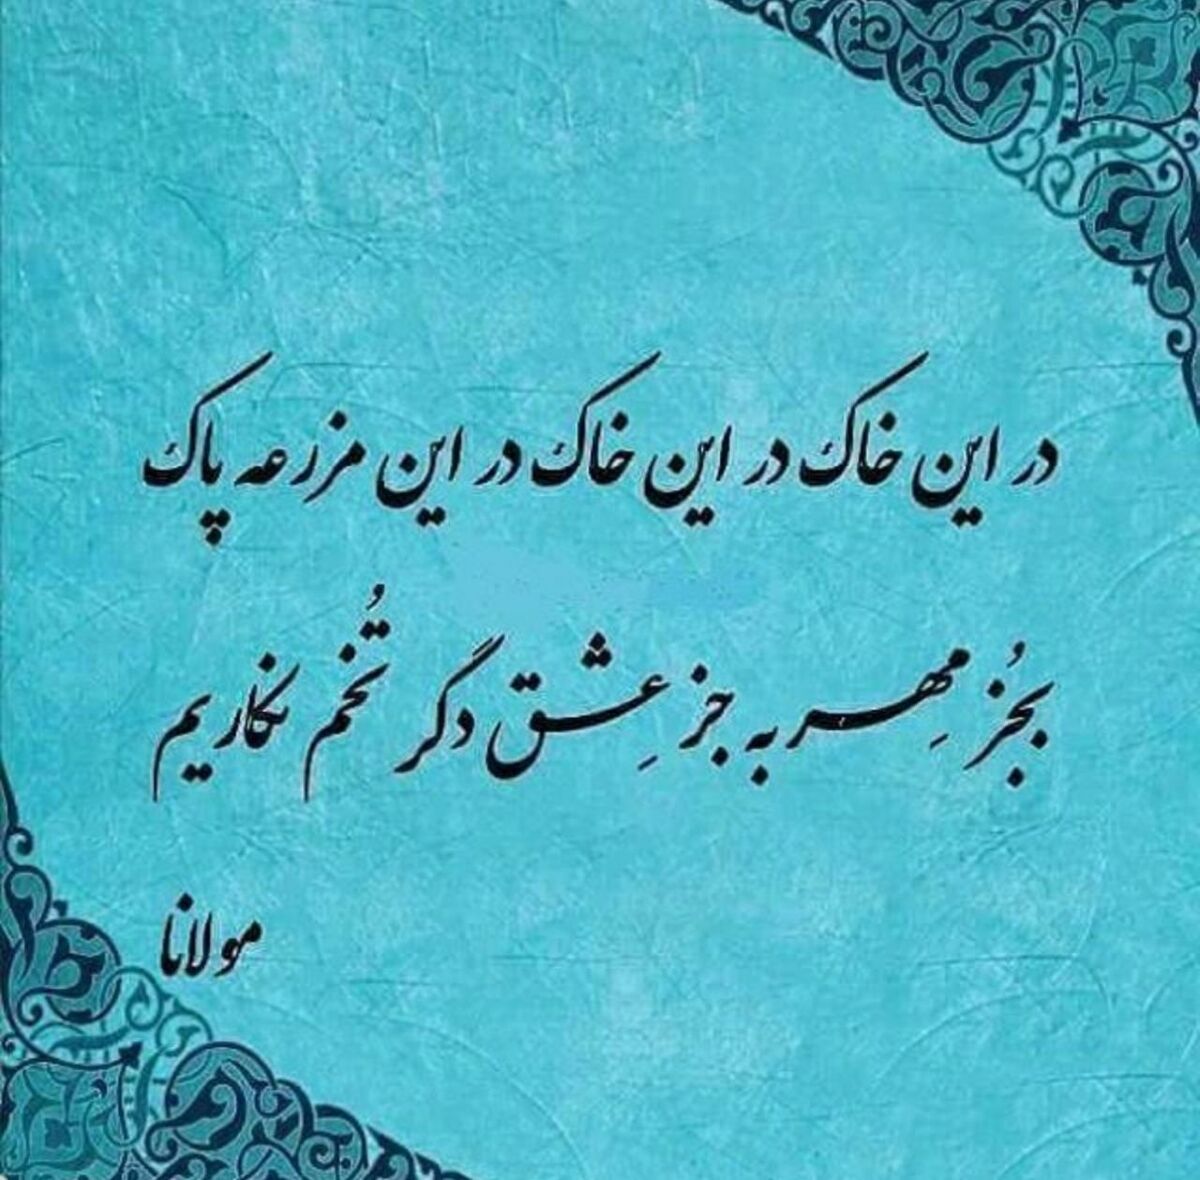 در این خاک در این خاک در این مزرعه پاک
بجُز مِهر به جز عِشق دگر تُخم نکاریم
مولانا